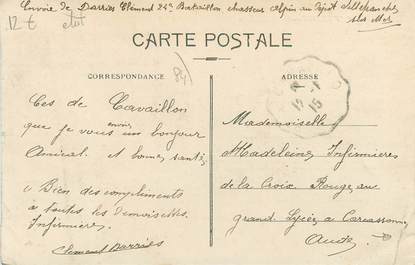 Envoie de Darries Clement 24e Bataillon chasseur Alpin au Dépot Villefranche
sur Mer
12 €
CARTE POSTALE
CORRESPONDANCE
(84)
ADRESSE
15 - 1
15
Ces de Cavaillon
que je vous envois un bonjour
Amical. et bonne santé,
" Bien des compliments
à toutes les Demoiselles
Infirmières
Clement Darriès
Mademoiselle
Madeleine Infirmières
de la Croix Rouge au
grand Lycée a Carcassonne
Aude